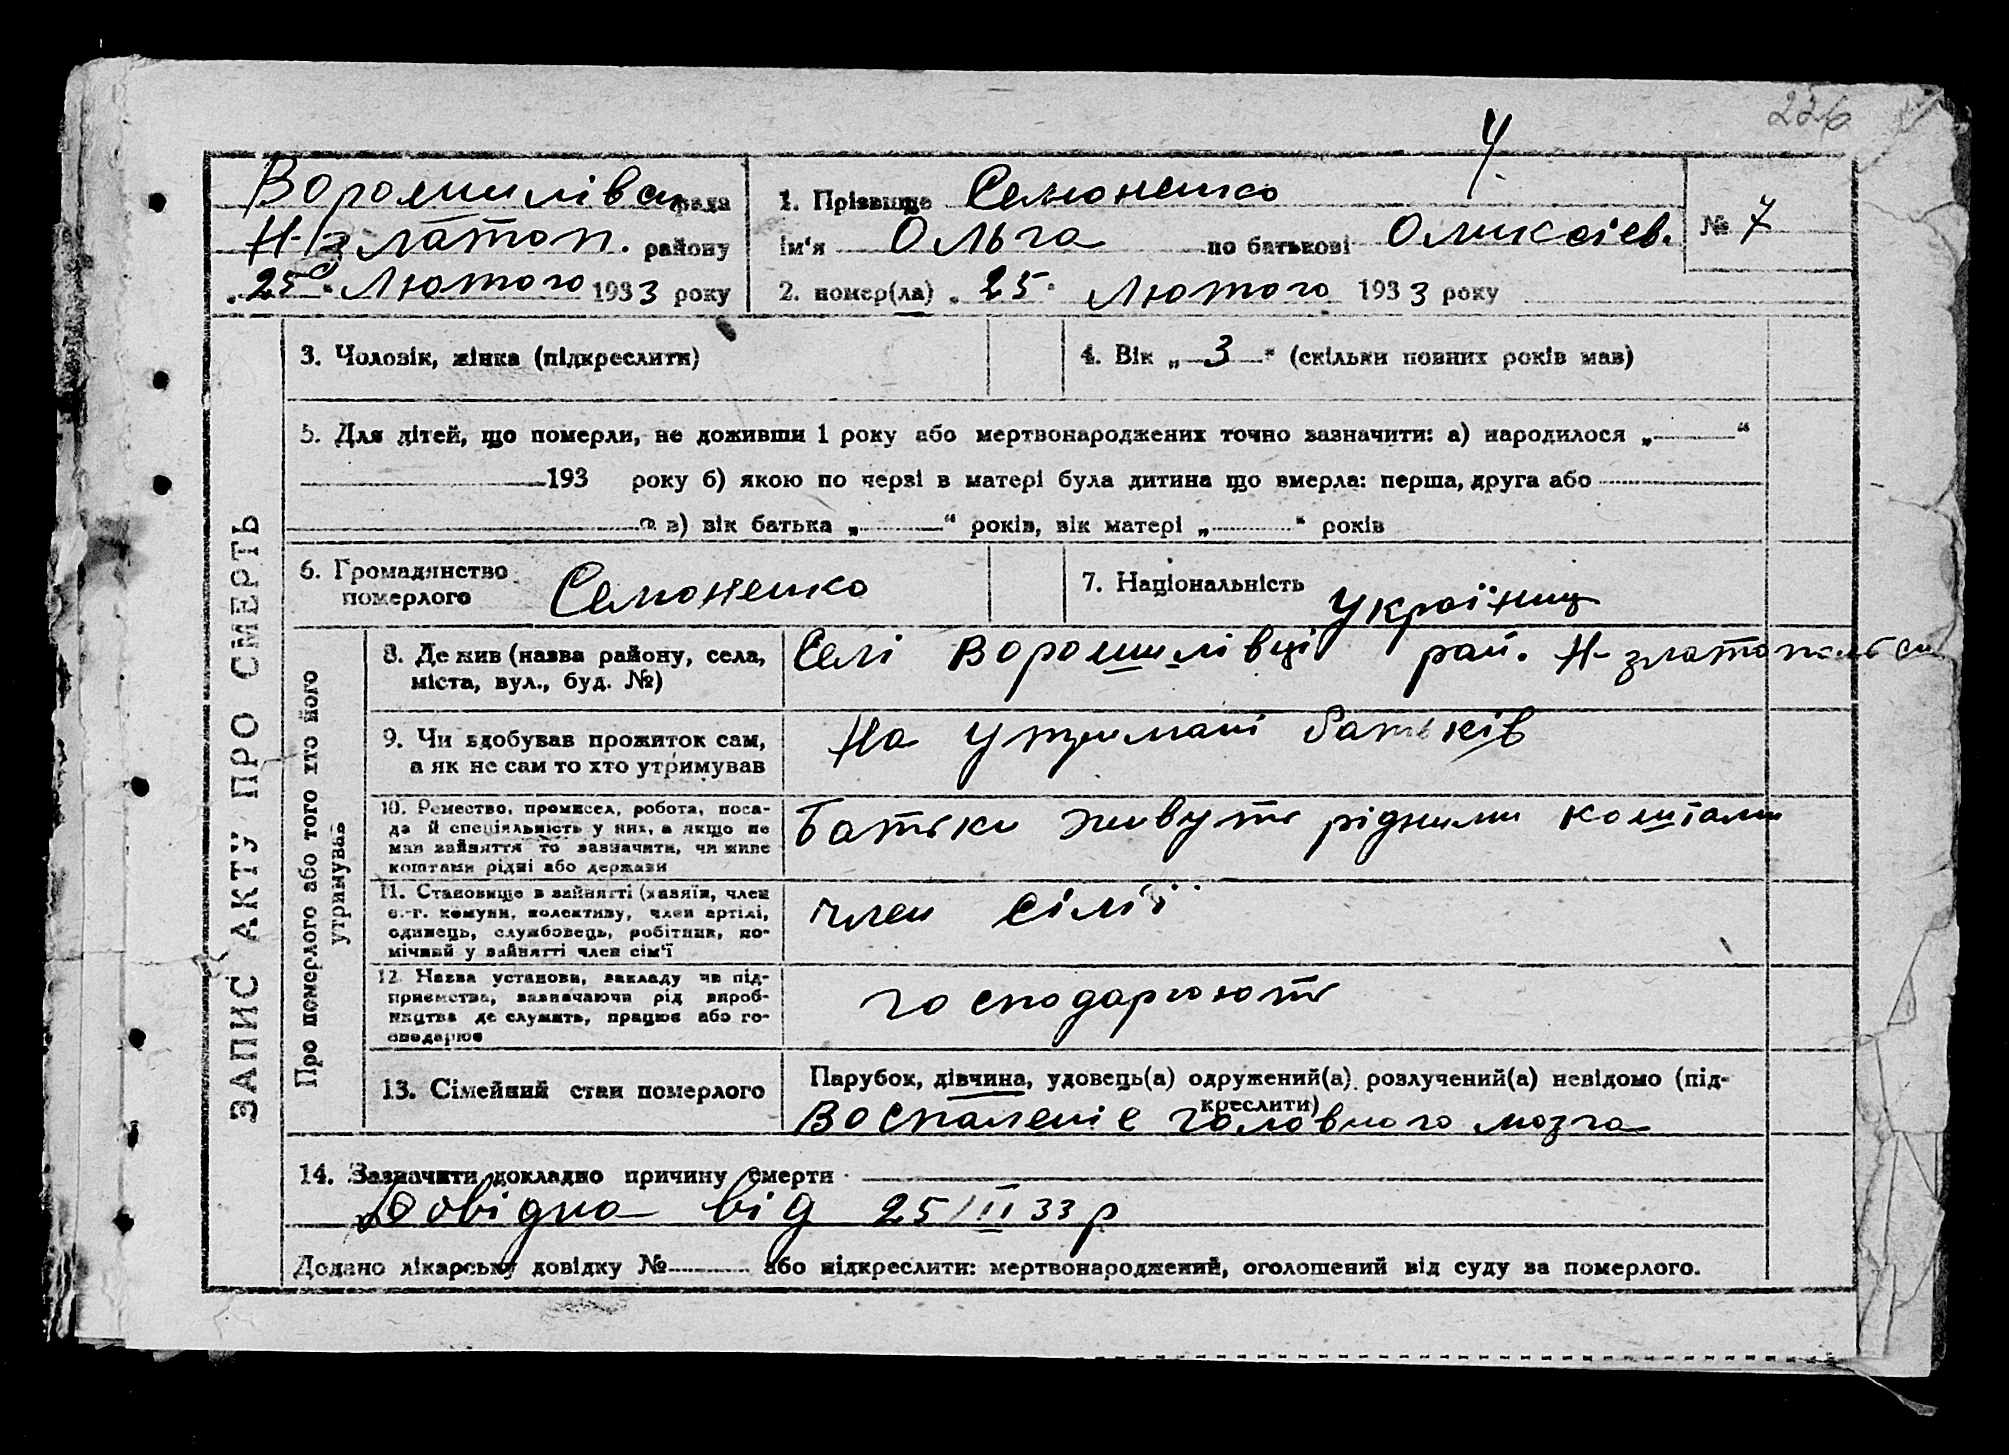 226
4
Ворошилівск рада
Н-Златоп. району
„25“ Лютого 1933 року
1. Прізвище Семоненко
ім'я Ольга по батькові Оликсіев.
2. помер(ла) „25“ Лютого 1933 року
№ 7
ЗАПИС АКТУ ПРО СМЕРТЬ
3. Чоловік, жінка (підкреслити)
4. Вік „3“ (скільки повних років мав)
5. Для дітей, що померли, не доживши 1 року або мертвонароджених точно зазначити: а) народилося „ “
193 року б) якою по черзі в матері була дитина що вмерла: перша, друга або
а в) вік батька „ “ років, вік матері „ “ років
6. Громадянство померлого Семоненко
7. Національність Україниц
Про померлого або того хто його утримував
8. Де жив (назва району, села,
міста, вул., буд. №)
Селі Ворошилівці рай. Н-златопольск
9. Чи здобував прожиток сам,
а як не сам то хто утримував
На утримані батьків
10. Ремество, промисел, робота, поса-
да й спеціяльність у них, а якщо не
мав зайняття то зазначити, чи живе
коштами рідні або держави
Батьки живуть рідними коштами
11. Становище в зайнятті (хазяїн, член
с.-г. комуни, колективу, член артілі,
одинець, службовець, робітник, по-
мічний у зайнятті член сім'ї
член сімї
12. Назва установи, закладу чи під-
приємства, зазначаючи рід вироб-
ництва де служить, працює або го-
сподарює
господарюють
13. Сімейний стан померлого
Парубок, дівчина, удовець(а) одружений(а) розлучений(а) невідомо (під-
креслити)
Воспаленіє головного мозга
14. Зазначити докладно причину смерти
Довідка від 25/II 33 р
Додано лікарську довідку № або підкреслити: мертвонароджений, оголошений від суду за померлого.